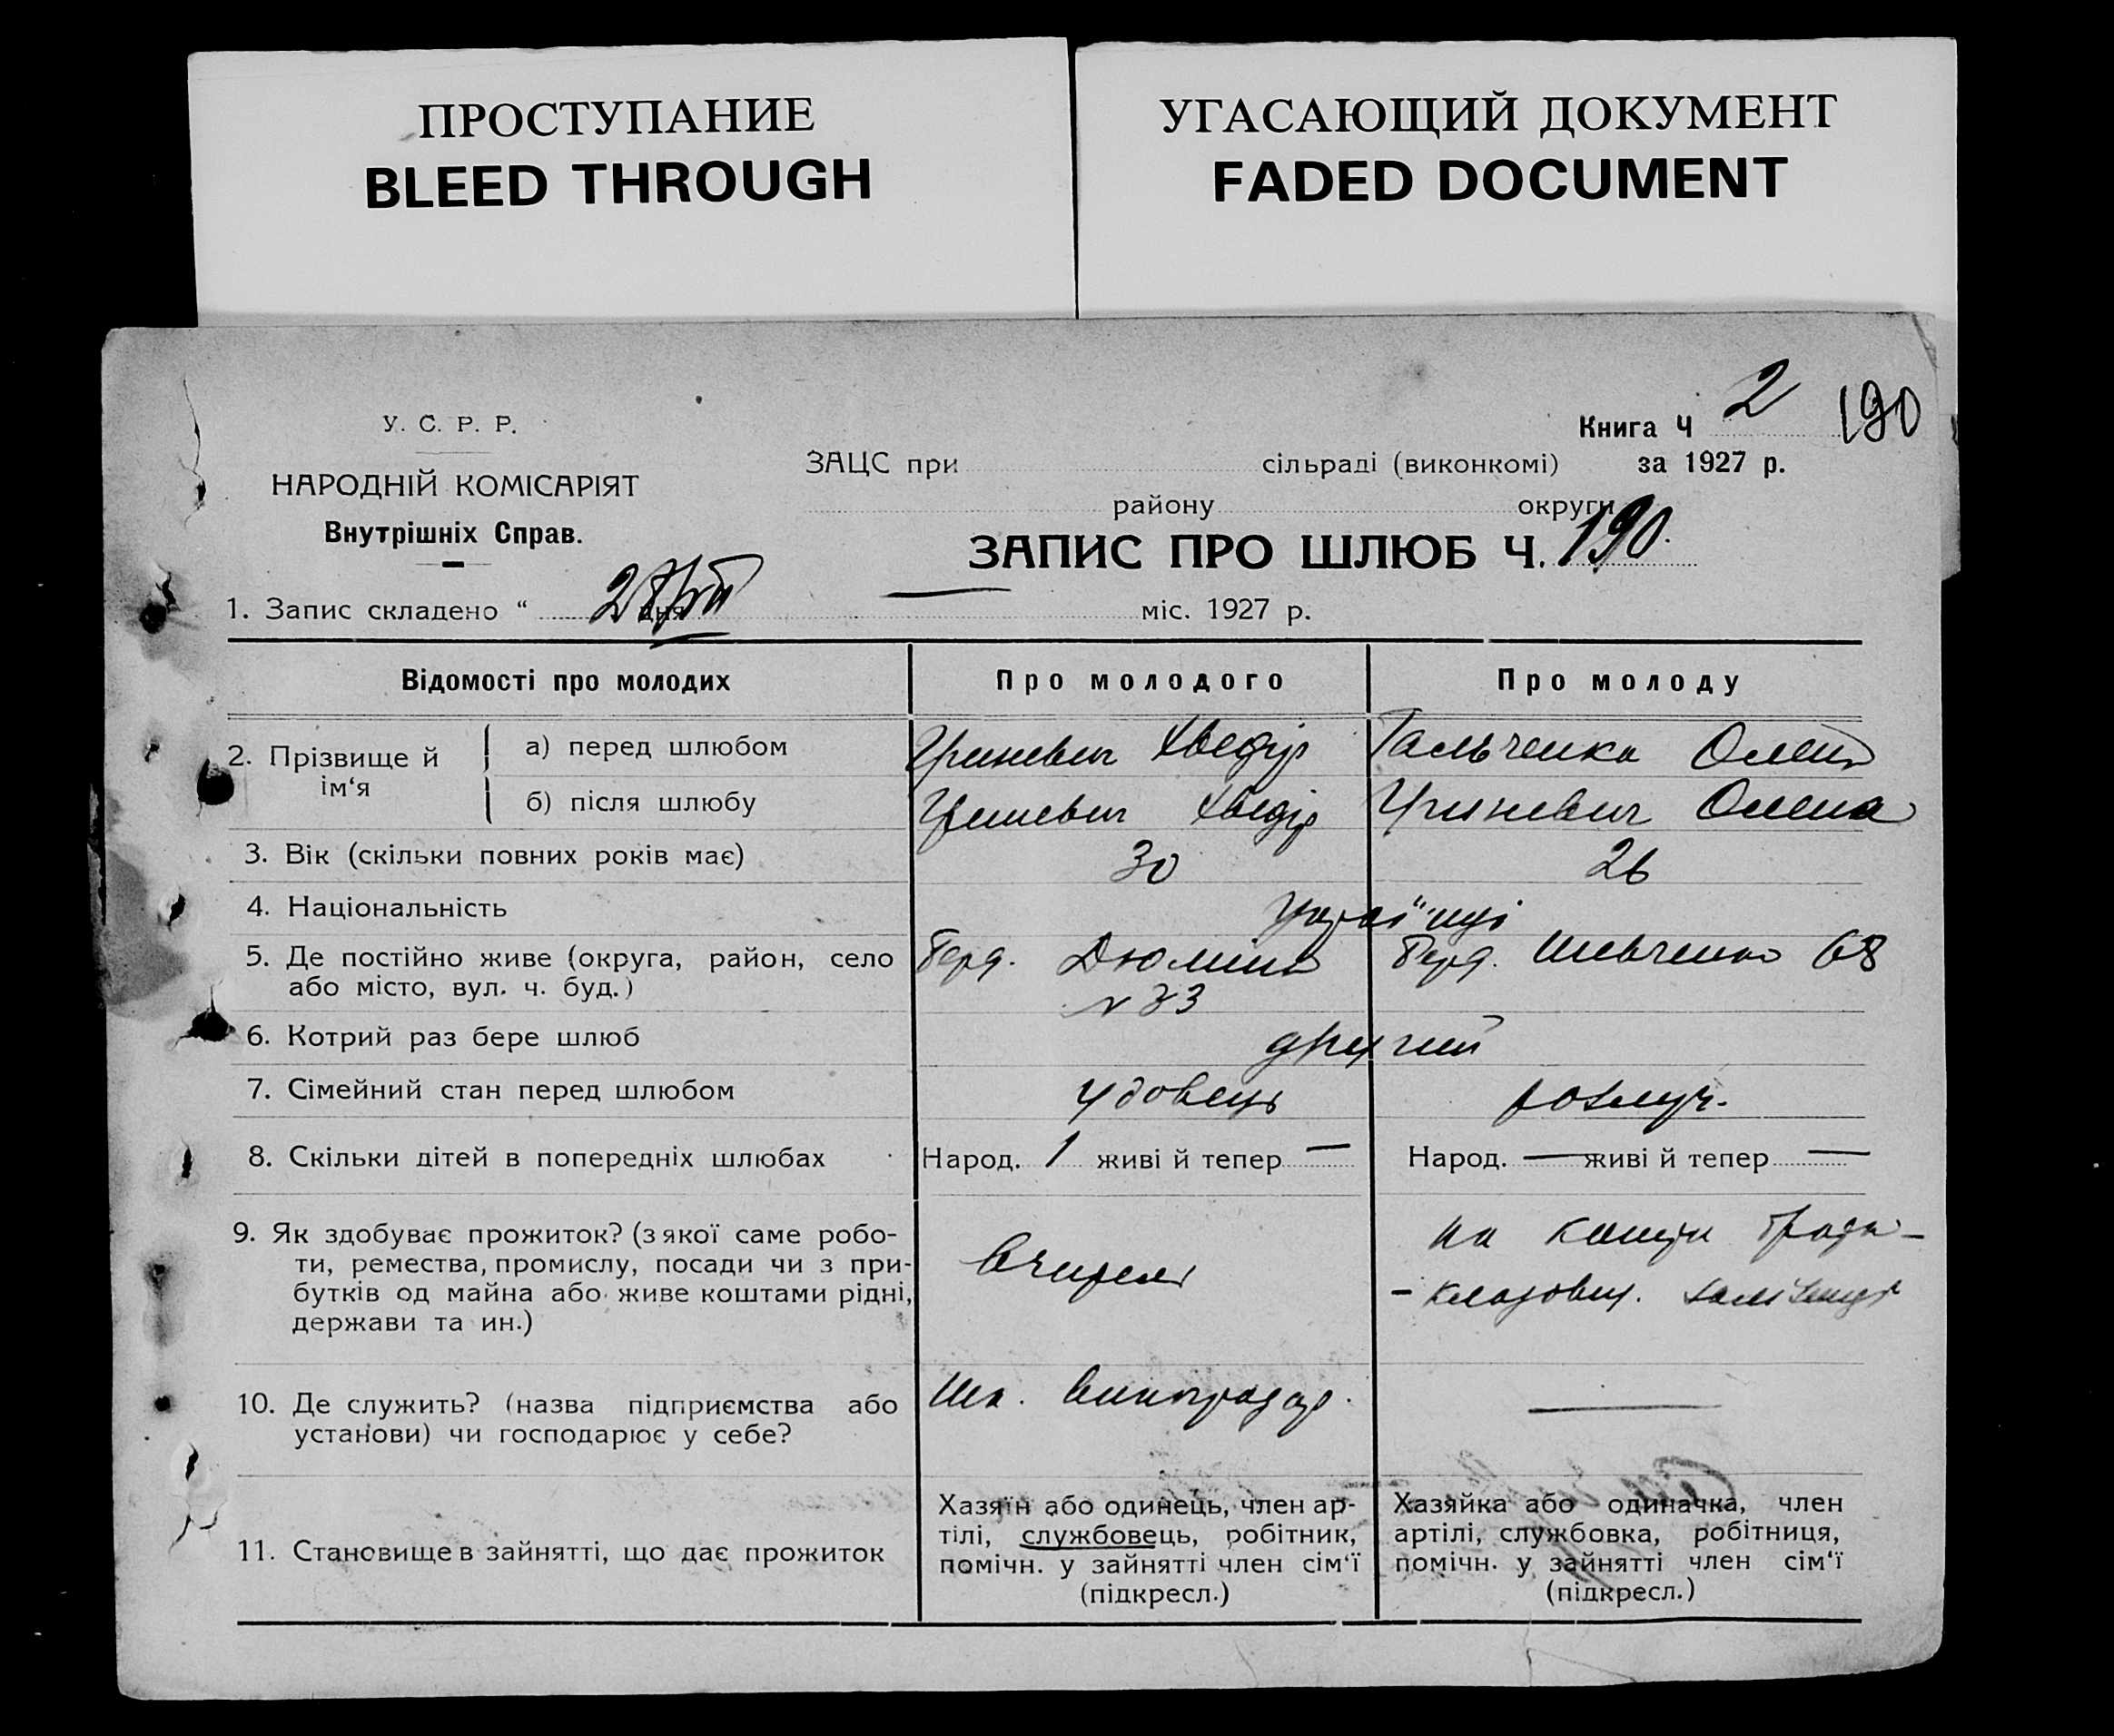 ПРОСТУПАНИЕ
BLEED THROUGH
УГАСАЮЩИЙ ДОКУМЕНТ
FADED DOCUMENT
У. С. Р. Р.
НАРОДНІЙ КОМІСАРІЯТ
Внутрішніх Справ.
Книга Ч 2 190
ЗАЦС при сільраді (виконкомі) за 1927 р.
району округи
ЗАПИС ПРО ШЛЮБ Ч. 190.
1. Запис складено “ дня міс. 1927 р.
Відомості про молодих Про молодого Про молоду
2. Прізвище й ім‘я
а) перед шлюбом Гриневич Хведір Гальченко Олена
б) після шлюбу Гриневич Хведір Гриневич Олена
3. Вік (скільки повних років має) 30 26
4. Національність украї"нці
5. Де постійно живе (округа, район, село
або місто, вул. ч. буд.)
Берд. Дюміна
N 33
Берд. Шевченко 68
6. Котрий раз бере шлюб другий
7. Сімейний стан перед шлюбом удовець розлуч.
8. Скільки дітей в попередніх шлюбах Народ. 1 живі й тепер — Народ. — живі й тепер —
9. Як здобуває прожиток? (з якої саме робо-
ти, ремества, промислу, посади чи з при-
бутків од майна або живе коштами рідні,
держави та ин.)
Вчитель
на кошти брата -
10. Де служить? (назва підприємства або
установи) чи господарює у себе?
Шк. Виноградар.
—
11. Становище в зайнятті, що дає прожиток
Хазяїн або одинець, член ар-
тілі, службовець, робітник,
помічн. у зайнятті член сім‘ї
(підкресл.)
Хазяйка або одиначка, член
артілі, службовка, робітниця,
помічн. у зайнятті член сім‘ї
(підкресл.)